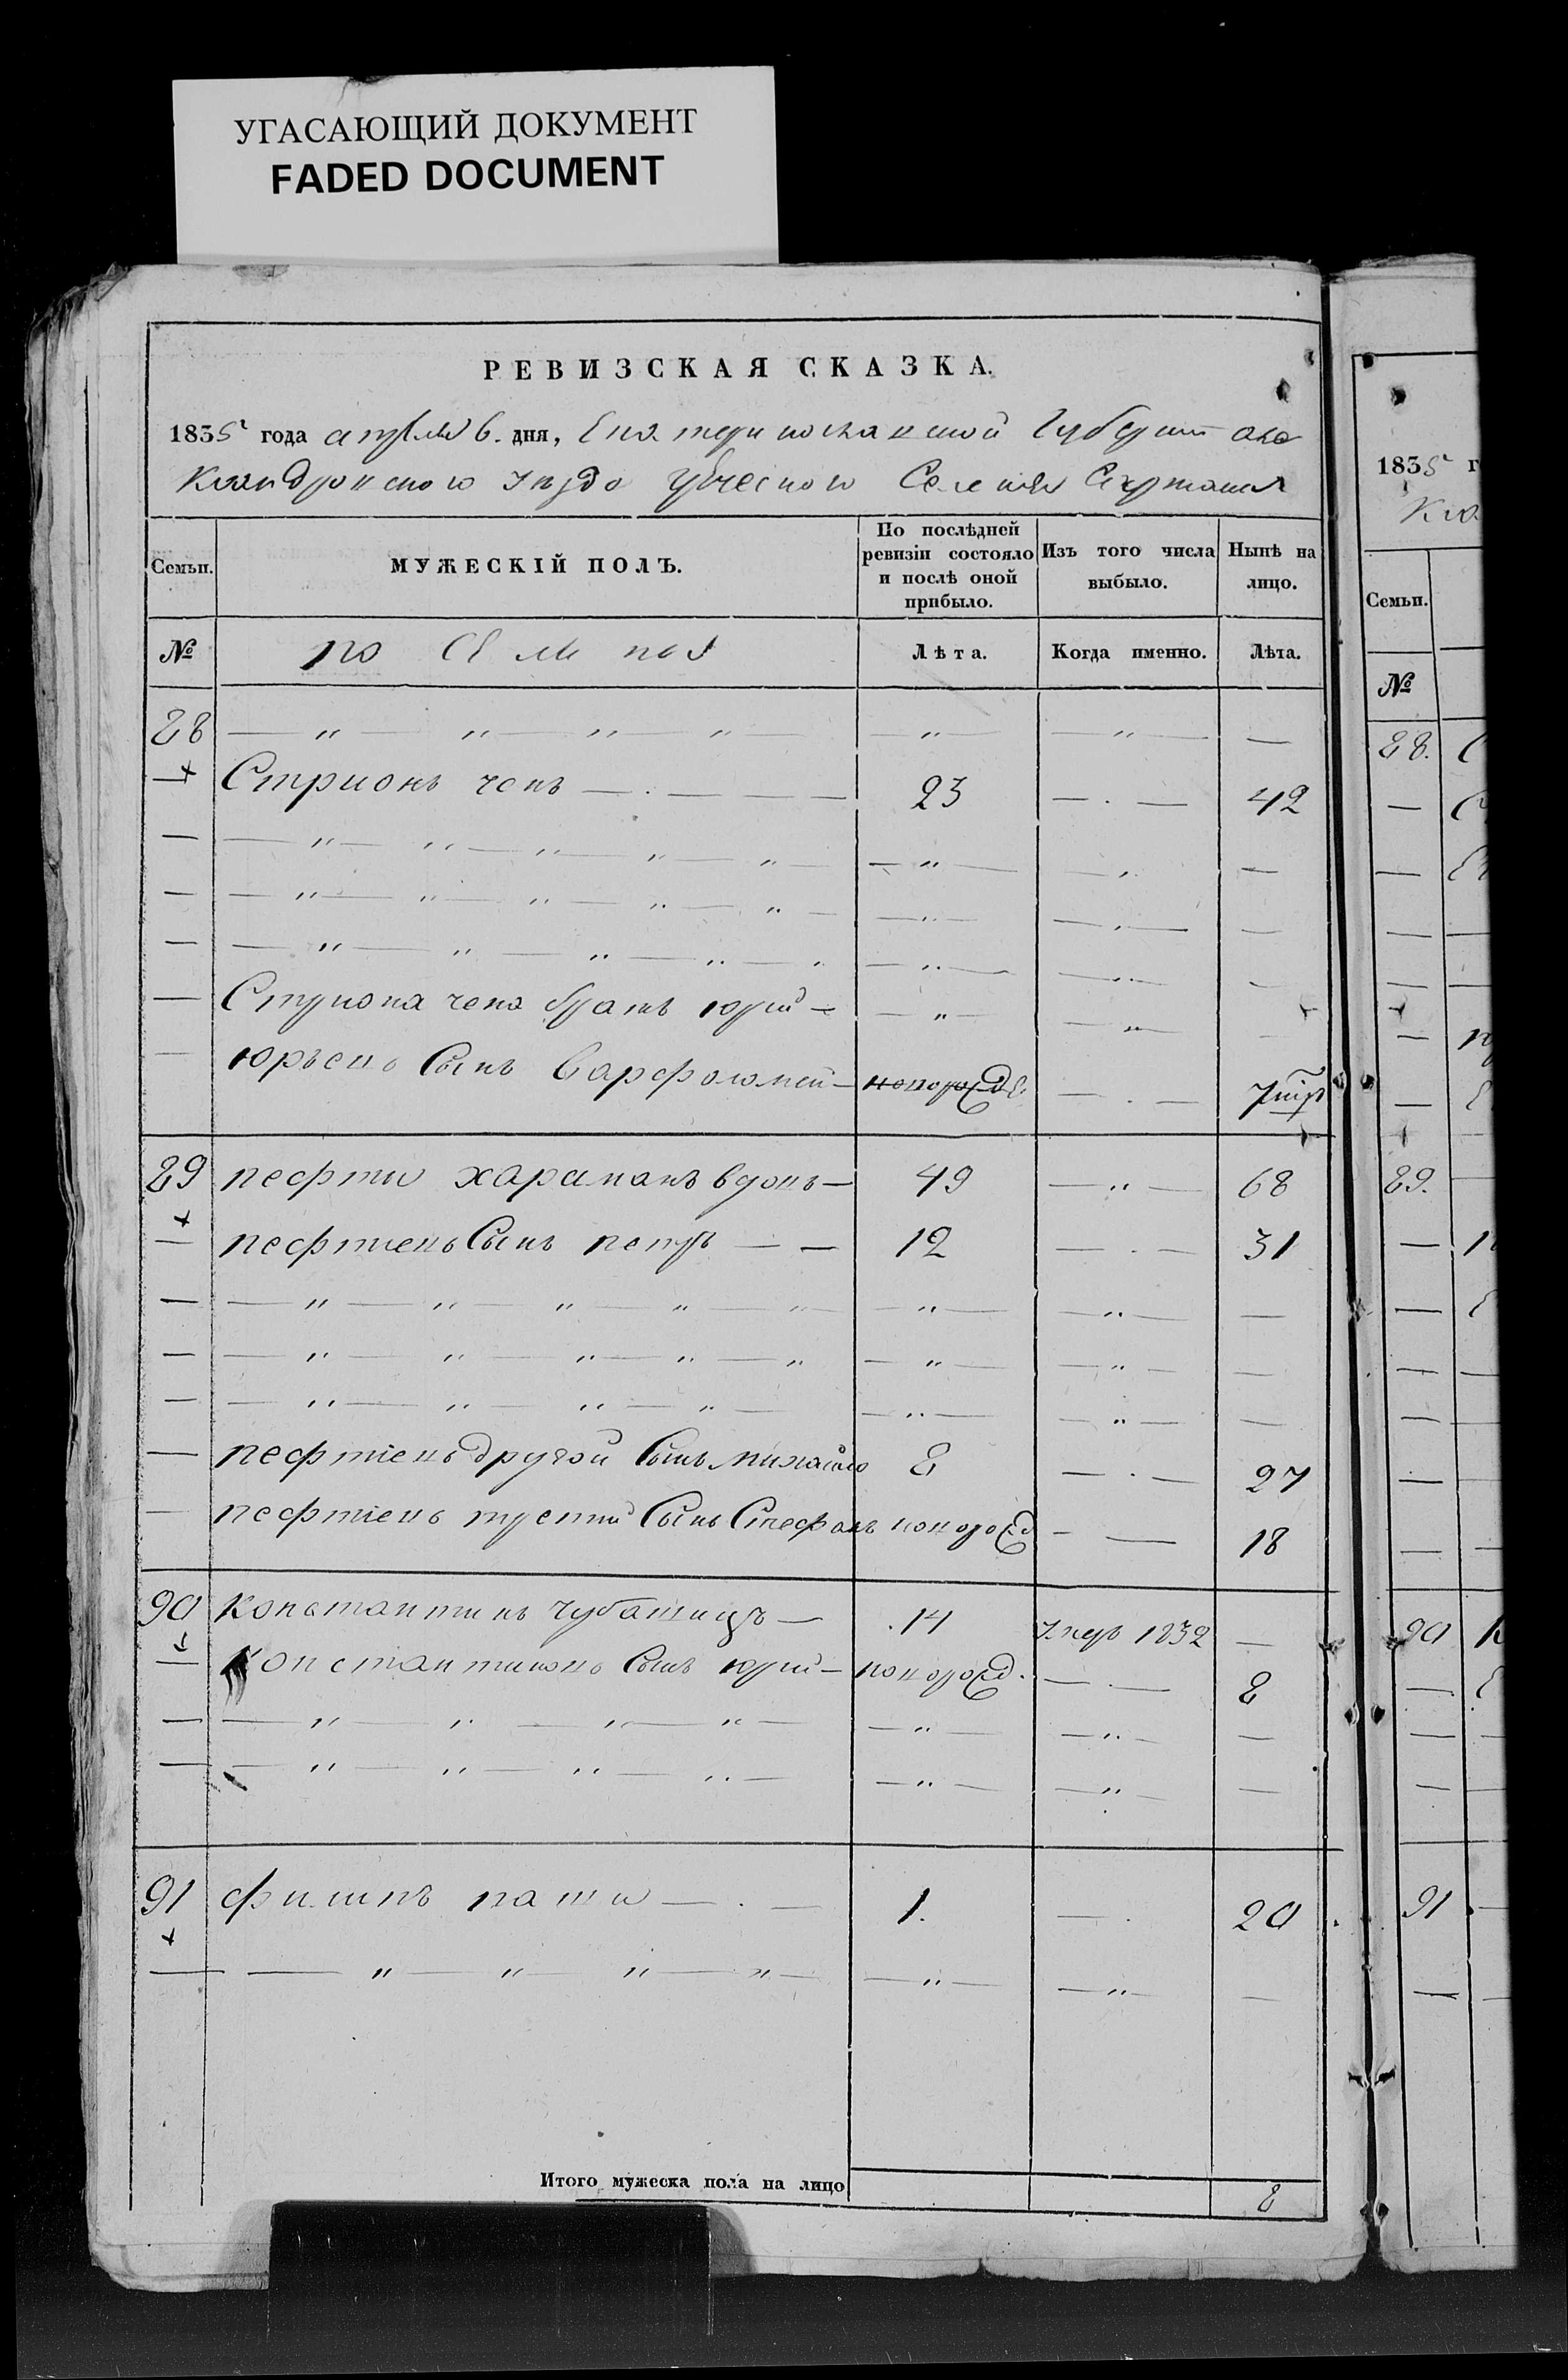 УГАСАЮЩИЙ ДОКУМЕНТ
FADED DOCUMENT
РЕВИЗСКАЯ СКАЗКА.
1835 года апреля 6. дня, Екатеринославской Губернии Але
ксандровского уезда греческого Селения Сартана
Семьи. МУЖЕСКІЙ ПОЛЪ. По послѣдней ревизіи состояло и послѣ оной прибыло. Изъ того числа выбыло. Нынѣ на лицо.
№ Лѣта. Когда именно. Лѣта.
28
Стріонъ чепъ 23 42
Стріона чепа братъ юрій
юрьевъ Сынъ Варфоломей новорожд.
29 пефти хараманъ вдовъ 49 68
пефтіевъ Сынъ петръ 12 31
пефтіевъ другой Сынъ михайло 8 27
пефтіевъ третій Сынъ Стефанъ новорожд 18
90 Константинъ 14 умеръ 1832
Константиновъ Сынъ юрій новорожд. 8
91 филипъ паши 1. 20
Итого мужеска пола на лицо 8
1835 г
Семьи.
№
28.
29.
90
91